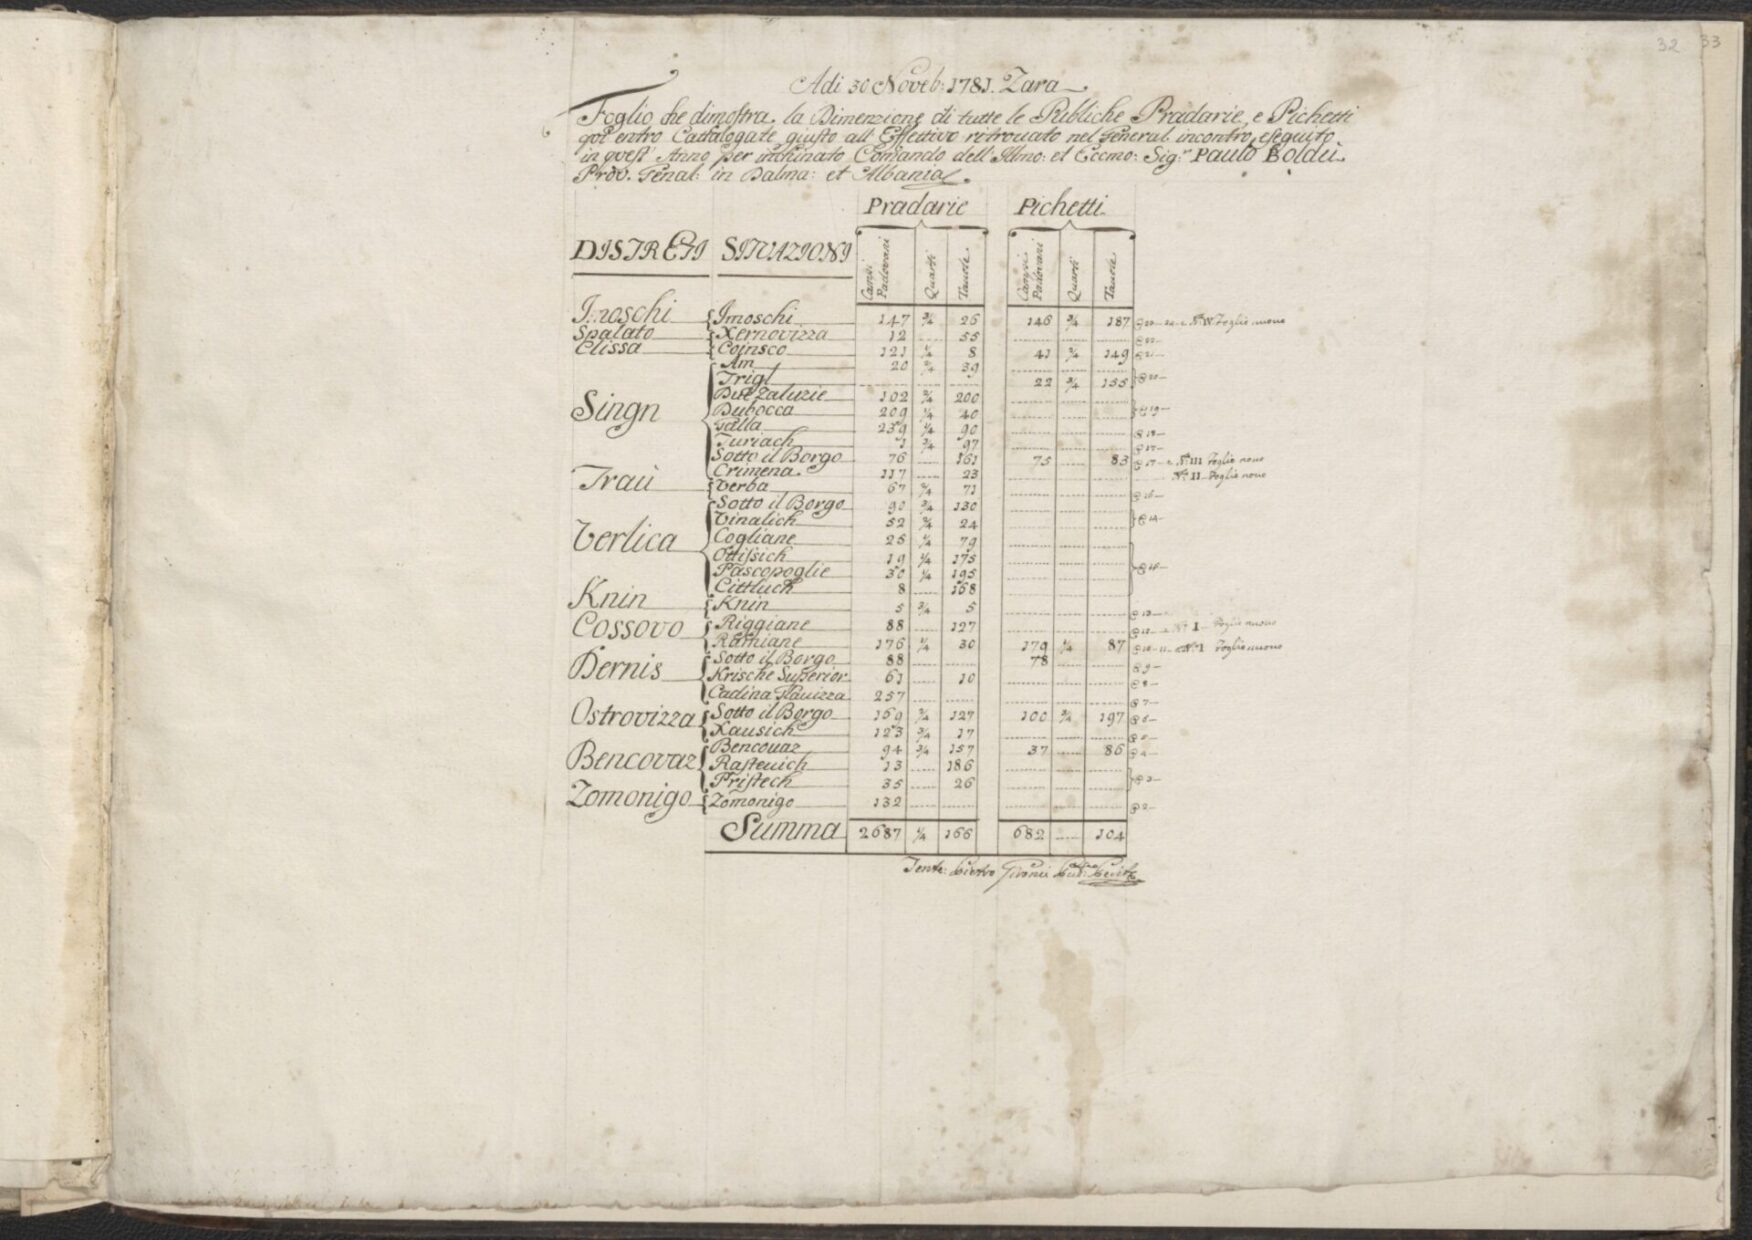 32 33
Adi 30 Noveb: 1781. Zara
Foglio che dimostra la Dimenzione di tutte le Publiche Pradarie, e Pichetti
qui entro Cattalogate giusto all' Effettivo ritrouato nel General incontro, eseguito
in quest' Anno per inchinato Comando dell' Illmo: et Eccmo: Sig.r Paulo Boldù
Prov. Genal: in Dalma: et Albania.
Pradarie Pichetti
DISTRETI SITUAZIONI Campi Padovani Quarti Tauole Campi Padovani Quarti Tauole
Imoschi Imoschi 147 3/4 26 146 3/4 187 Nº IV Foglio nuovo
Spalato Xernovizza 12 55
Clissa Coinsco 121 1/4 8 41 3/4 149
Am 20 3/4 39
Trigl 22 3/4 155
Due Zaluzie 102 3/4 200
Singn Dubocca 209 1/4 40
Galla 239 1/4 90
Turiach 1 3/4 97
Sotto il Borgo 76 161 75 83 Nº III Foglio novo
Traù Crimena 117 23 Nº II Foglio novo
Verba 67 3/4 71
Sotto il Borgo 90 3/4 130
Vinalich 52 3/4 24
Verlica Cogliane 25 1/4 79
Ottissich 19 1/4 175
Pascopoglie 30 1/4 195
Cittluch 8 168
Knin Knin 5 3/4 5
Cossovo Riggiane 88 127 Nº I Foglio nuovo
Ramiane 176 1/4 30 179 1/4 87 Nº I Foglio nuovo
Dernis Sotto il Borgo 88 78
Krische Superior 61 10
Cadina Glauizza 257
Ostrovizza Sotto il Borgo 169 3/4 127 100 3/4 197
Xausich 123 3/4 17
Bencovaz Bencouaz 94 3/4 157 37 86
Rasteuich 13 186
Pristech 35 26
Zomonigo Zomonigo 132
Summa 2687 1/4 166 682 104
Tente: Pietro